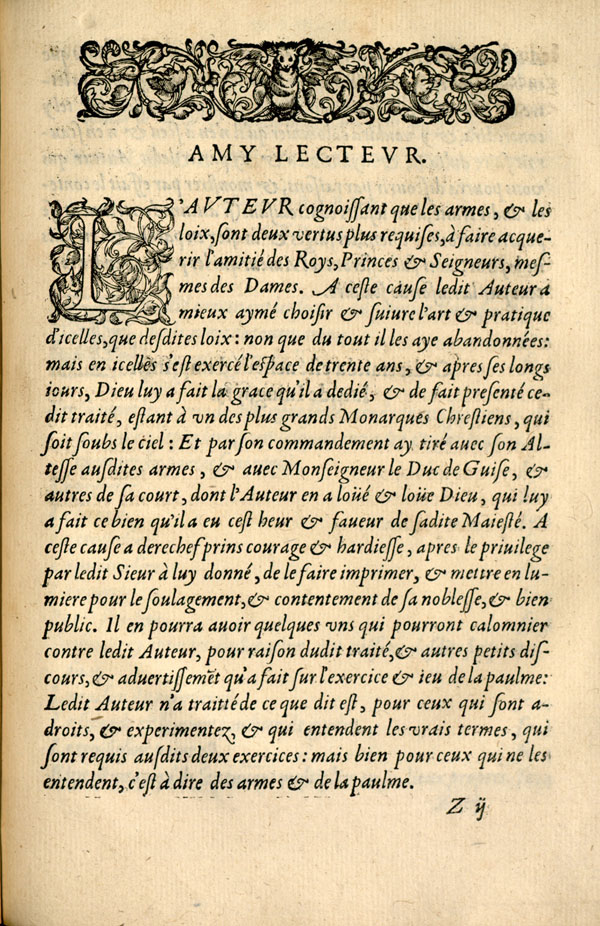 AMY LECTEVR.
L'AVTEVR cognoiſſant que les armes, & les
loix, ſont deux vertus plus requiſes, à faire acque-
rir l'amitié des Roys, Princes & Seigneurs, meſ-
mes des Dames. A ceſte cauſe ledit Auteur a
mieux aymé choiſir & ſuiure l'art & pratique
d'icelles, que deſdites loix : non que du tout il les aye abandonnées:
mais en icelles s'eſt exercé l'eſpace de trente ans, & apres ſes longs
iours, Dieu luy a fait la grace qu'il a dedié, & de fait preſenté ce-
dit traité, eſtant à vn des plus grands Monarques Chreſtiens, qui
ſoit ſoubs le ciel : Et par ſon commandement ay tiré auec ſon Al-
teſſe auſdites armes, & auec Monſeigneur le Duc de Guiſe, &
autres de ſa court, dont l'Auteur en a loüé & loüe Dieu, qui luy
a fait ce bien qu'il a eu ceſt heur & faueur de ſadite Maieſté. A
ceſte cauſe a derechef prins courage & hardieſſe, apres le priuilege
par ledit Sieur à luy donné, de le faire imprimer, & mettre en lu-
miere pour le ſoulagement, & contentement de ſa nobleſſe, & bien
public. Il en pourra auoir quelques vns qui pourront calomnier
contre ledit Auteur, pour raiſon dudit traité, & autres petits diſ-
cours, & aduertiſſemēt qu'a fait ſur l'exercice & ieu de la paulme:
Ledit Auteur n'a traitié de ce que dit eſt, pour ceux qui ſont a-
droits, & experimentez, & qui entendent les vrais termes, qui
ſont requis auſdits deux exercices : mais bien pour ceux qui ne les
entendent, c'eſt à dire des armes & de la paulme.
Z ij